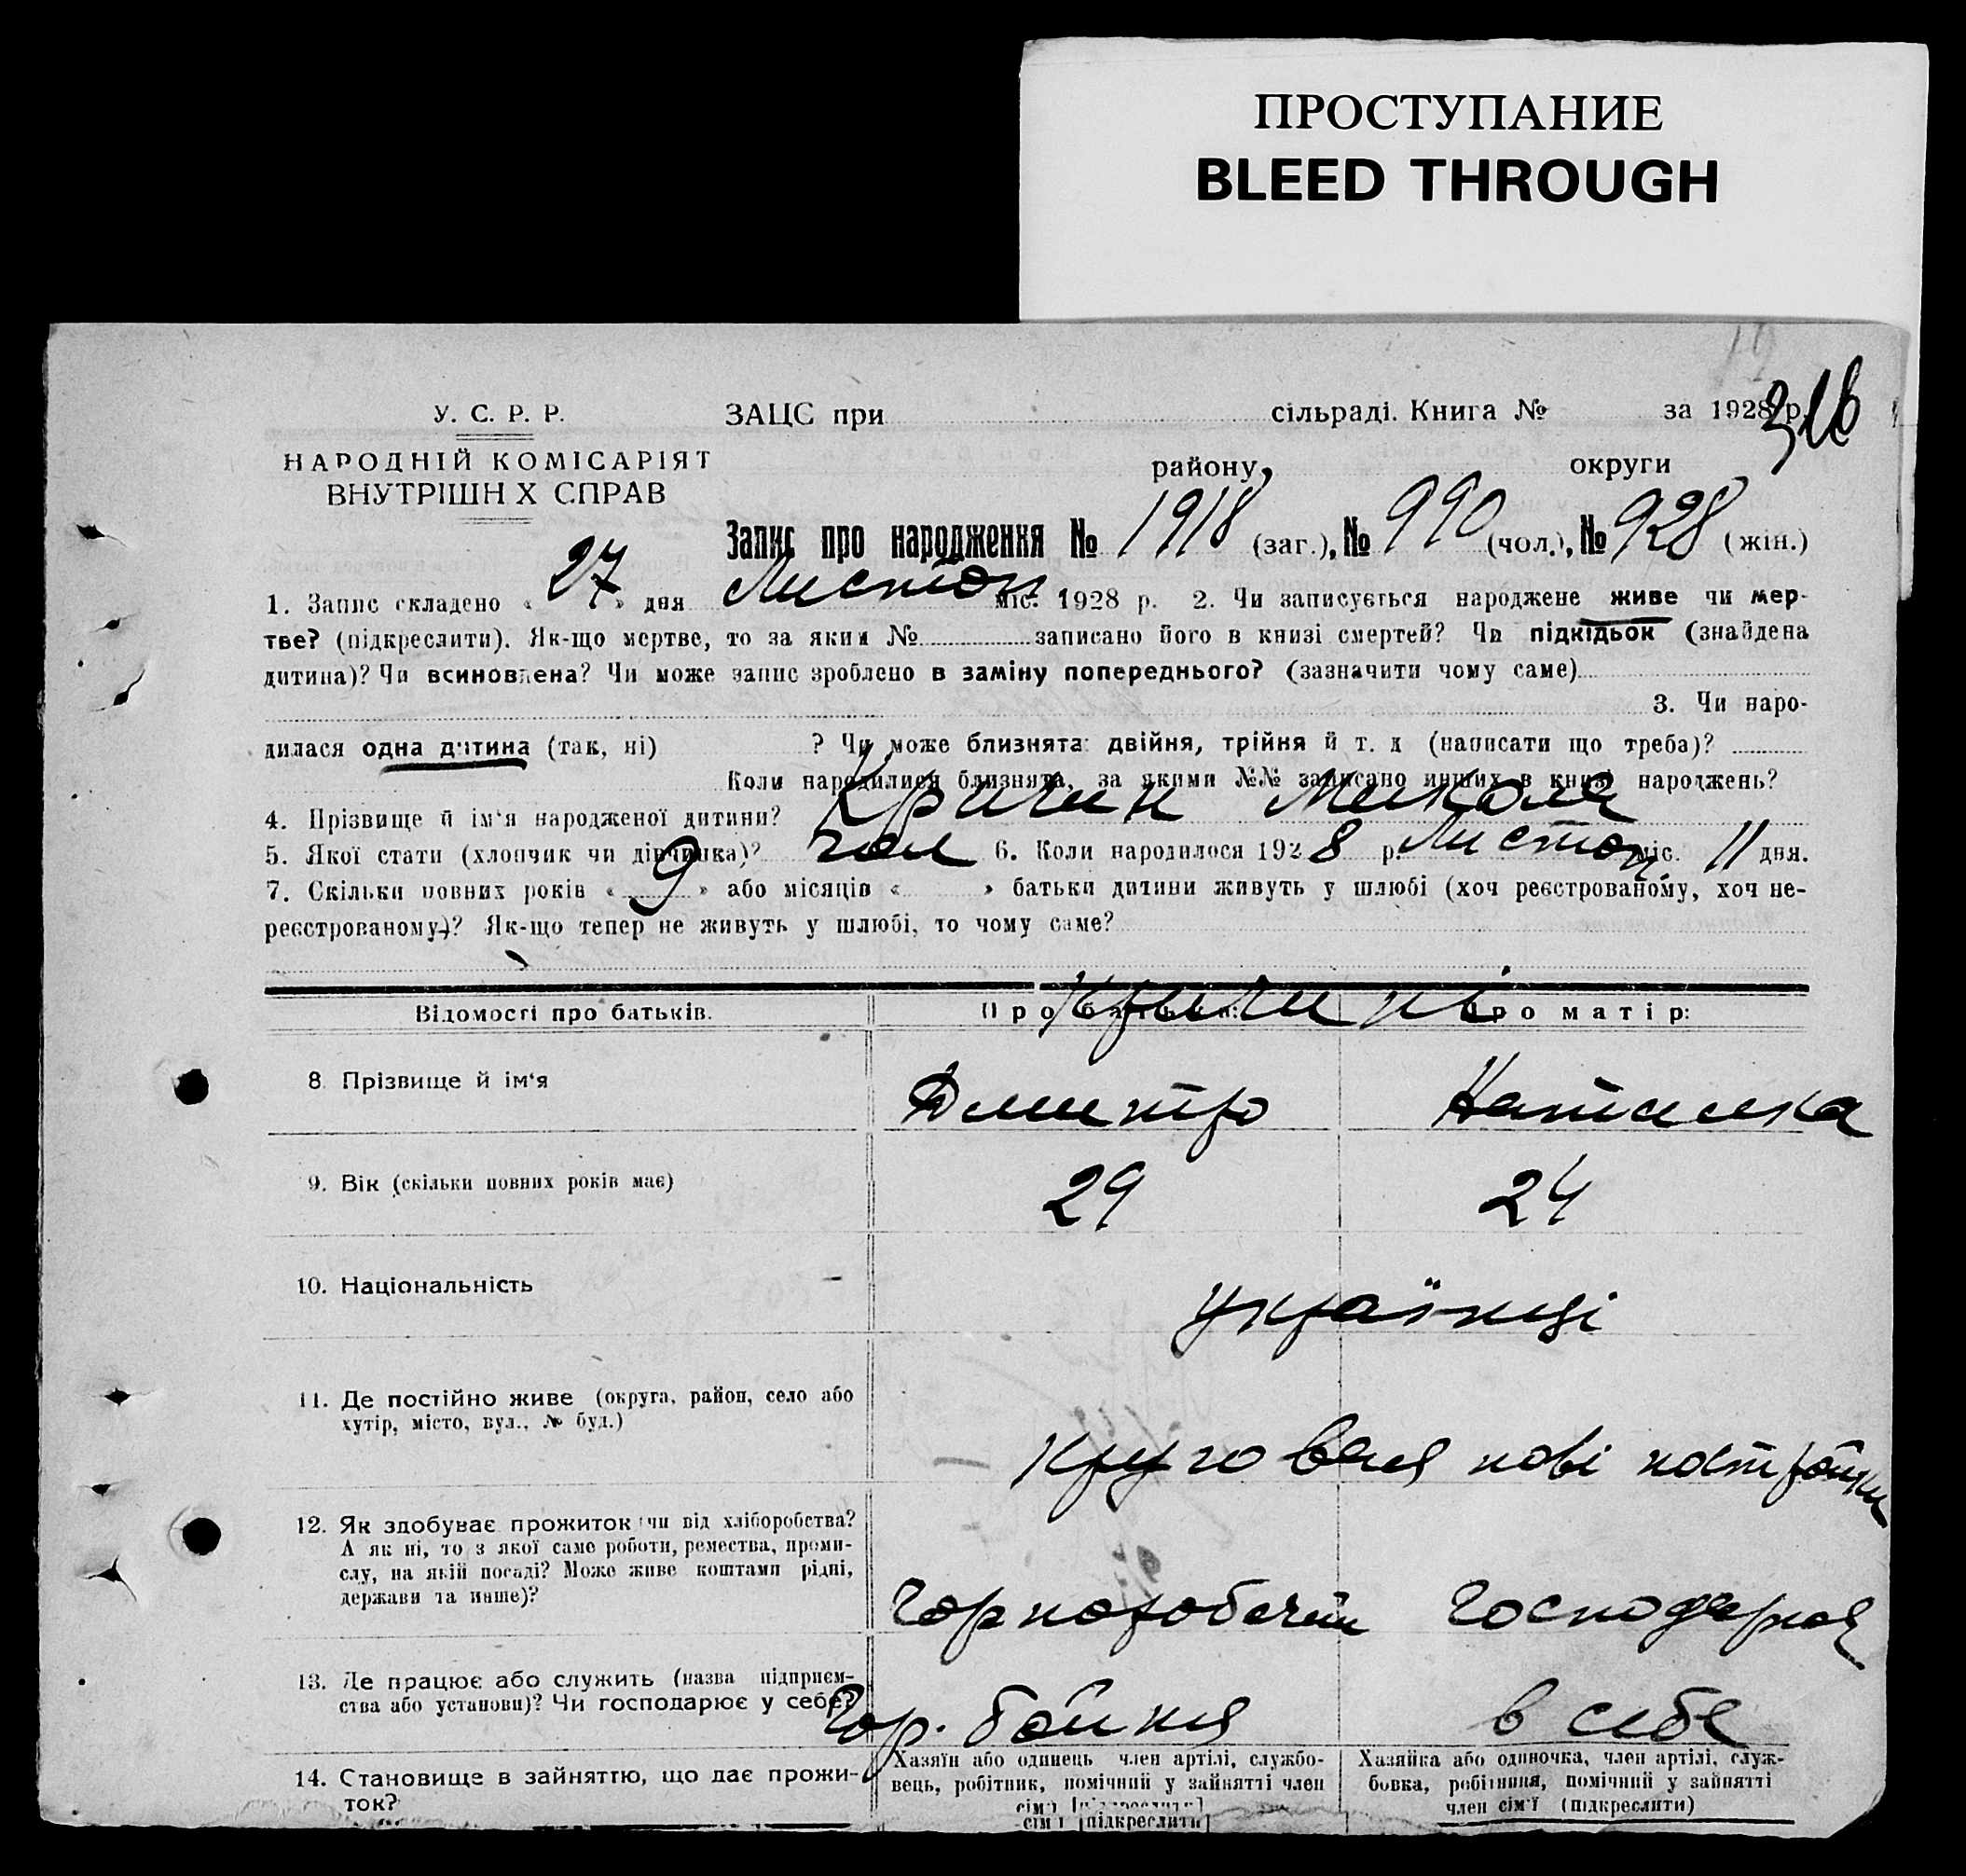 ПРОСТУПАНИЕ
BLEED THROUGH
У. С. Р. Р.
НАРОДНІЙ КОМІСАРІЯТ
ВНУТРІШН Х СПРАВ
ЗАЦС при сільраді. Книга № за 1928 р. 316
району, округи
Запис про народження № 1918 (заг.), № 990 (чол.), № 928 (жін.)
1. Запис складено « 27 » дня Листоп міс. 1928 р. 2. Чи записується народжене живе чи мер-
тве? (підкреслити). Як-що мертве, то за яким № записано його в книзі смертей? Чи підкідьок (знайдена
дитина)? Чи всиновлена? Чи може запис зроблено в заміну попереднього? (зазначити чому саме)
3. Чи наро-
дилася одна дитина (так, ні) ? Чи може близнята: двійня, трійня й т. д (написати що треба)?
Коли народилися близнята, за якими №№ записано инших в книзі народжень?
4. Прізвище й ім'я народженої дитини? Кричин Микола
5. Якої стати (хлопчик чи дівчинка)? чол 6. Коли народилося 1928 р. Листоп міс. 11 дня.
7. Скільки повних років « 9 » або місяців « » батьки дитини живуть у шлюбі (хоч реєстрованому, хоч не-
реєстрованому)? Як-що тепер не живуть у шлюбі, то чому саме?
Відомості про батьків. Про батька: Про матір:
8. Прізвище й ім'я Дмитро Наталка
9. Вік (скільки повних років має) 29 24
10. Національність українці
11. Де постійно живе (округа, район, село або
хутір, місто, вул., № буд.)
Кругова нові постройки
12. Як здобуває прожиток чи від хліборобства?
А як ні, то з якої саме роботи, ремества, проми-
слу, на якій посаді? Може живе коштами рідні,
держави та инше)?
Чорноробочий Господарка
13. Де працює або служить (назва підприєм-
ства або установи)? Чи господарює у себе?
Гор. бойня в себе
14. Становище в зайняттю, що дає прожи-
ток?
Хазяїн або одинець член артілі, службо-
вець, робітник, помічний у зайнятті член
сім'ї [підкреслити]
Хазяйка або одиночка, член артілі, служ-
бовка, робітниця, помічний у зайнятті
член сім'ї (підкреслити)